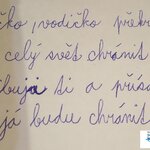 čko, vodičko překr
celý svět chránit
buja ti a přísa
já budu chránit